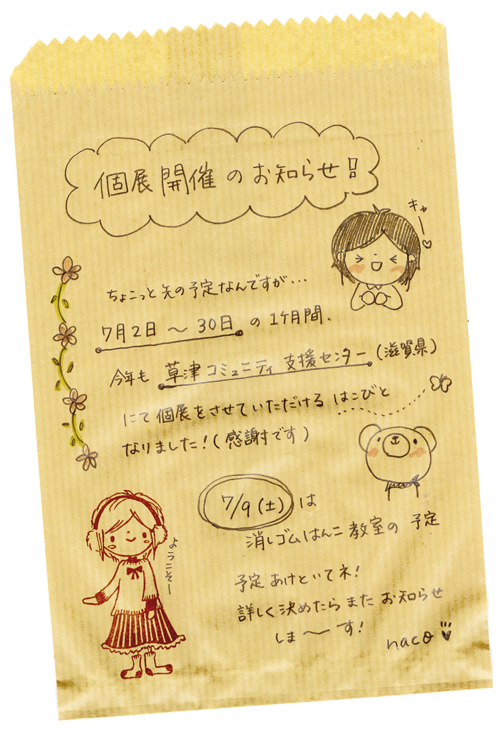 個展開催のお知らせ!!
キャー♡
ちょこっと先の予定なんですが...
7月2日 〜 30日 の 1ヶ月間、
今年も 草津コミュニティ支援センター (滋賀県)
にて個展をさせていただけるはこびと
なりました!(感謝です)
7/9(土)は
消しゴムはんこ教室の予定
ようこそー
予定あけといてネ!
詳しく決めたらまたお知らせ
しま〜す!
naco